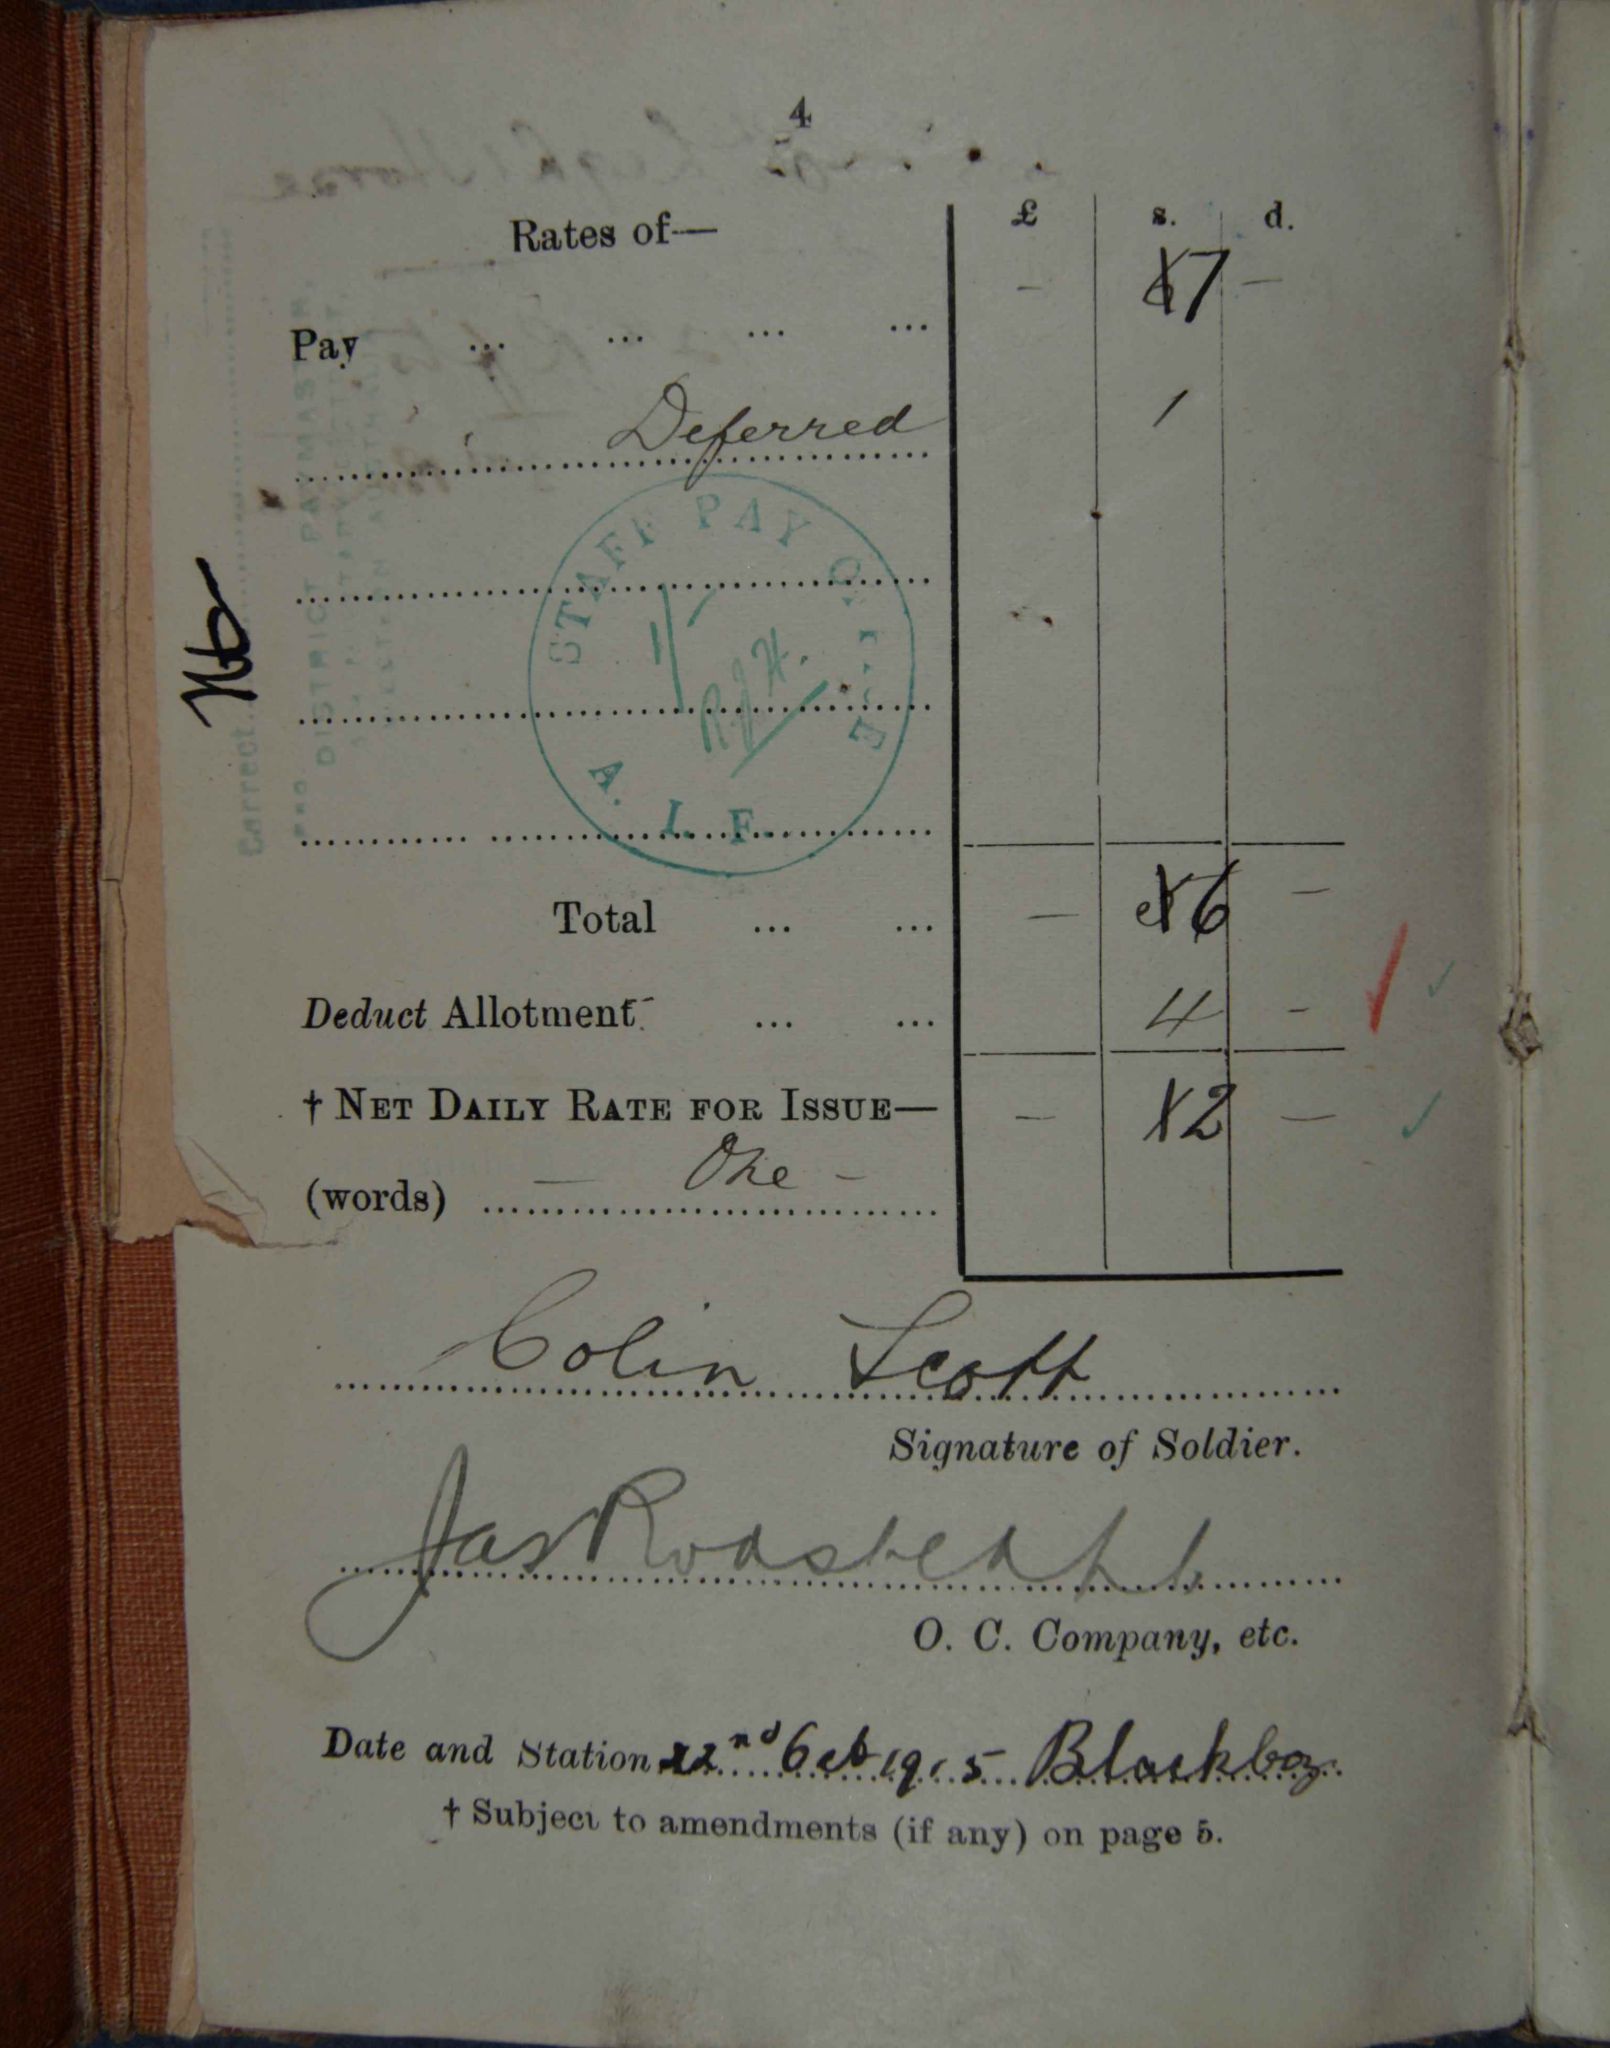 4
Rates of—
£ s. d.
Pay ... ... ... ... - 7 -
Deferred 1
STAFF PAY OFFICE
R.J.H.
A. I. F.
Total ... ... - 6 -
Deduct Allotment ... ... 4 -
† NET DAILY RATE FOR ISSUE— - 2 -
(words) - One -
Colin Scott
Signature of Soldier.
Jas
O. C. Company, etc.
Date and Station 22nd Feb 1915 Blackboy
† Subject to amendments (if any) on page 5.
Correct
DISTRICT PAYMASTER,